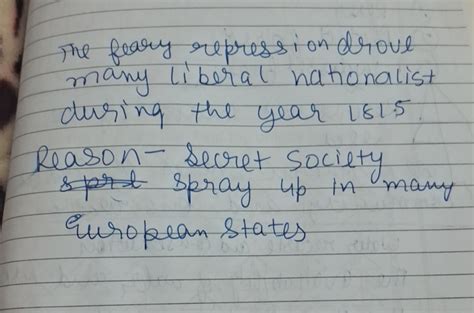 The feary repression drove
many liberal nationalist
during the year 1815.
Reason - Secret Society
spray up in many
European States